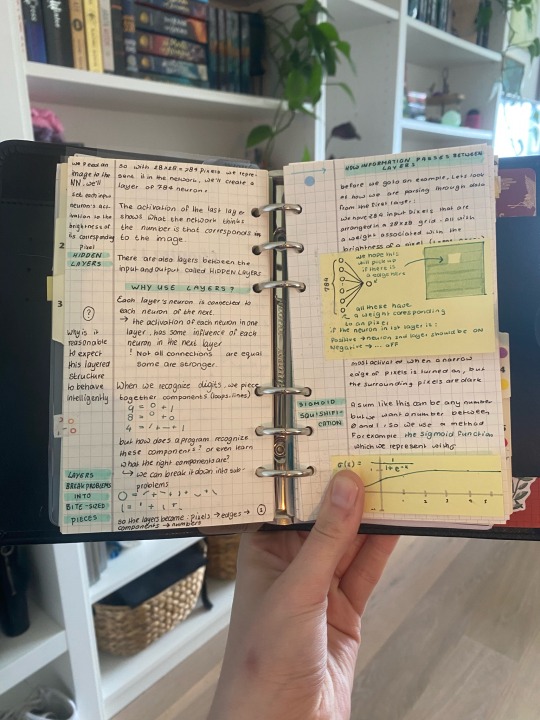 we need an
image to the
NN, we'll
set each input
neuron's act-
ivation to the
brightness of
its corresponding
pixel
2
HIDDEN
LAYERS
3
?
why is it
reasonable
to expect
this layered
structure
to behave
intelligently
LAYERS
BREAK PROBLEMS
INTO
BITE-SIZED
PIECES
so with 28x28 = 784 pixels we repre-
sent it in the network, we'll create a
layer of 784 neurons.
The activation of the last layer
shows what the network thinks
the number is that corresponds
to the image
There are also layers between the
input and output called HIDDEN LAYERS
WHY USE LAYERS?
Each layer's neuron is connected to
each neuron of the next.
→ the activation of each neuron in one
layer, has some influence of each
neuron in the next layer
! Not all connections are equal
some are stronger.
When we recognize digits, we piece
together components (loops, lines)
9 = o + ı
8 = o + o
4 = ı + – + ı
but how does a program recognize
these components? or even learn
what the right components are?
↳ we can break it down into sub-
problems
so the layers become: pixels → edges →
components → numbers
1
HOW INFORMATION PASSES BETWEEN
LAYERS
before we go to an example, lets look
at how we are parsing through data
from the first layer:
we have 784 input pixels that are
arranged in a 28x28 grid, all with
a weight associated with the
brightness of a pixel
784
we hope this
will pick up
if there is
a edge here
all these have
a weight coresponding
to an pixel
if the neuron in 1st layer is:
Positive → neuron 2nd layer should be ON
Negative → ... OFF
most activated when a narrow
edge of pixels is turned on, but
the surrounding pixels are dark
SIGMOID
SQUISHIFI-
CATION
A sum like this can be any number
but we want a number between
0 and 1, so we use a method
For example: the sigmoid function
which we represent with
σ(x) = 1/1+e^-x